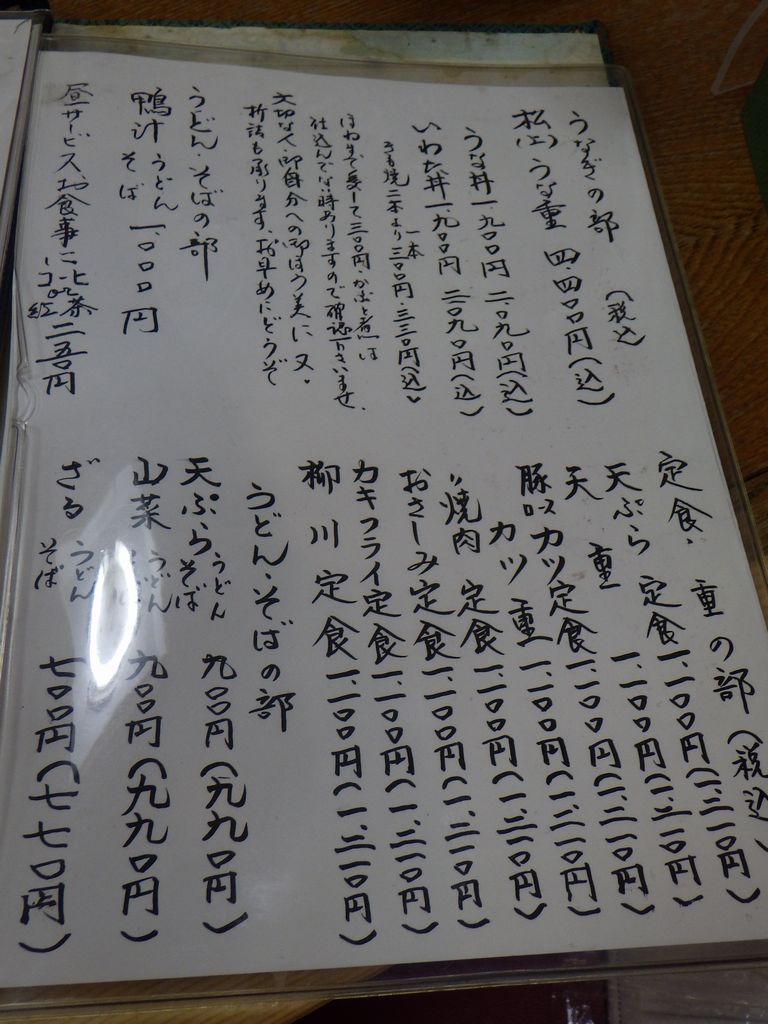 うなぎの部
(税込)
松(上)うな重 四.四〇〇円(込)
うな丼 一.九〇〇円 二.〇九〇円(込)
いわた丼 一.九〇〇円 二.〇九〇円(込)
きも焼 二本より 一本 三〇〇円.三三〇円(込)
仕込んでない時ありますので確認下さいませ.
大切な人.御自分への御ほう美に又.
折詰も承ります.お早めにどうぞ
うどん.そばの部
鴨汁 うどん そば 一.〇〇〇円
昼サービスお食事に 二五〇円
定食.重の部(税込)
天ぷら定食 一.一〇〇円(一.二一〇円)
天重 一.一〇〇円(一.二一〇円)
豚ロースカツ定食 一.一〇〇円(一.二一〇円)
〃カツ重 一.一〇〇円(一.二一〇円)
〃焼肉定食 一.一〇〇円(一.二一〇円)
おさしみ定食 一.一〇〇円(一.二一〇円)
カキフライ定食 一.一〇〇円(一.二一〇円)
柳川定食 一.一〇〇円(一.二一〇円)
うどん.そばの部
天ぷら うどん そば 九〇〇円(九九〇円)
山菜 うどん そば 九〇〇円(九九〇円)
ざる うどん そば 七〇〇円(七七〇円)